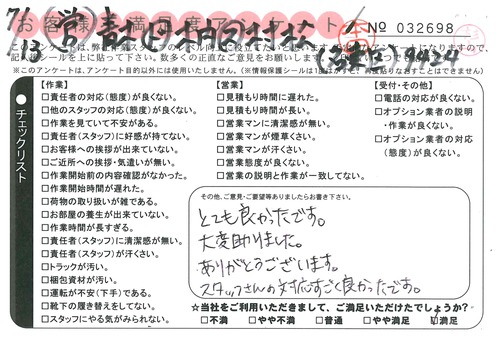 お客様満足度アンケート
No 032698
チェックリスト
【作業】
□責任者の対応(態度)が良くない。
□他のスタッフの対応(態度)が良くない。
□作業を見ていて不安がある。
□責任者(スタッフ)に好感が持てない。
□お客様への挨拶が出来ていない。
□ご近所への挨拶・気遣いが無い。
□作業開始前の内容確認がなかった。
□作業開始時間が遅れた。
□荷物の取り扱いが雑である。
□お部屋の養生が出来ていない。
□作業時間が長すぎる。
□責任者(スタッフ)に清潔感が無い。
□責任者(スタッフ)が汗くさい。
□トラックが汚い。
□梱包資材が汚い。
□運転が不安(下手)である。
□靴下の履き替えをしてない。
□スタッフにやる気がみられない。
【営業】
□見積もり時間に遅れた。
□見積もり時間が長い。
□営業マンに清潔感が無い。
□営業マンが煙草くさい。
□営業マンが汗くさい。
□営業態度が良くない。
□営業の説明と作業が一致してない。
【受付・その他】
□電話の対応が良くない。
□オプション業者の説明
・作業が良くない。
□オプション業者の対応
(態度)が良くない。
その他、ご意見・ご要望等ありましたらお書き下さい。
とても良かったです。
大変助りました。
ありがとうございます。
スタッフさんの対応すごく良かったです。
☆当社をご利用いただきまして、ご満足いただけたでしょうか?
□不満 □やや不満 □普通 □やや満足 ☑満足